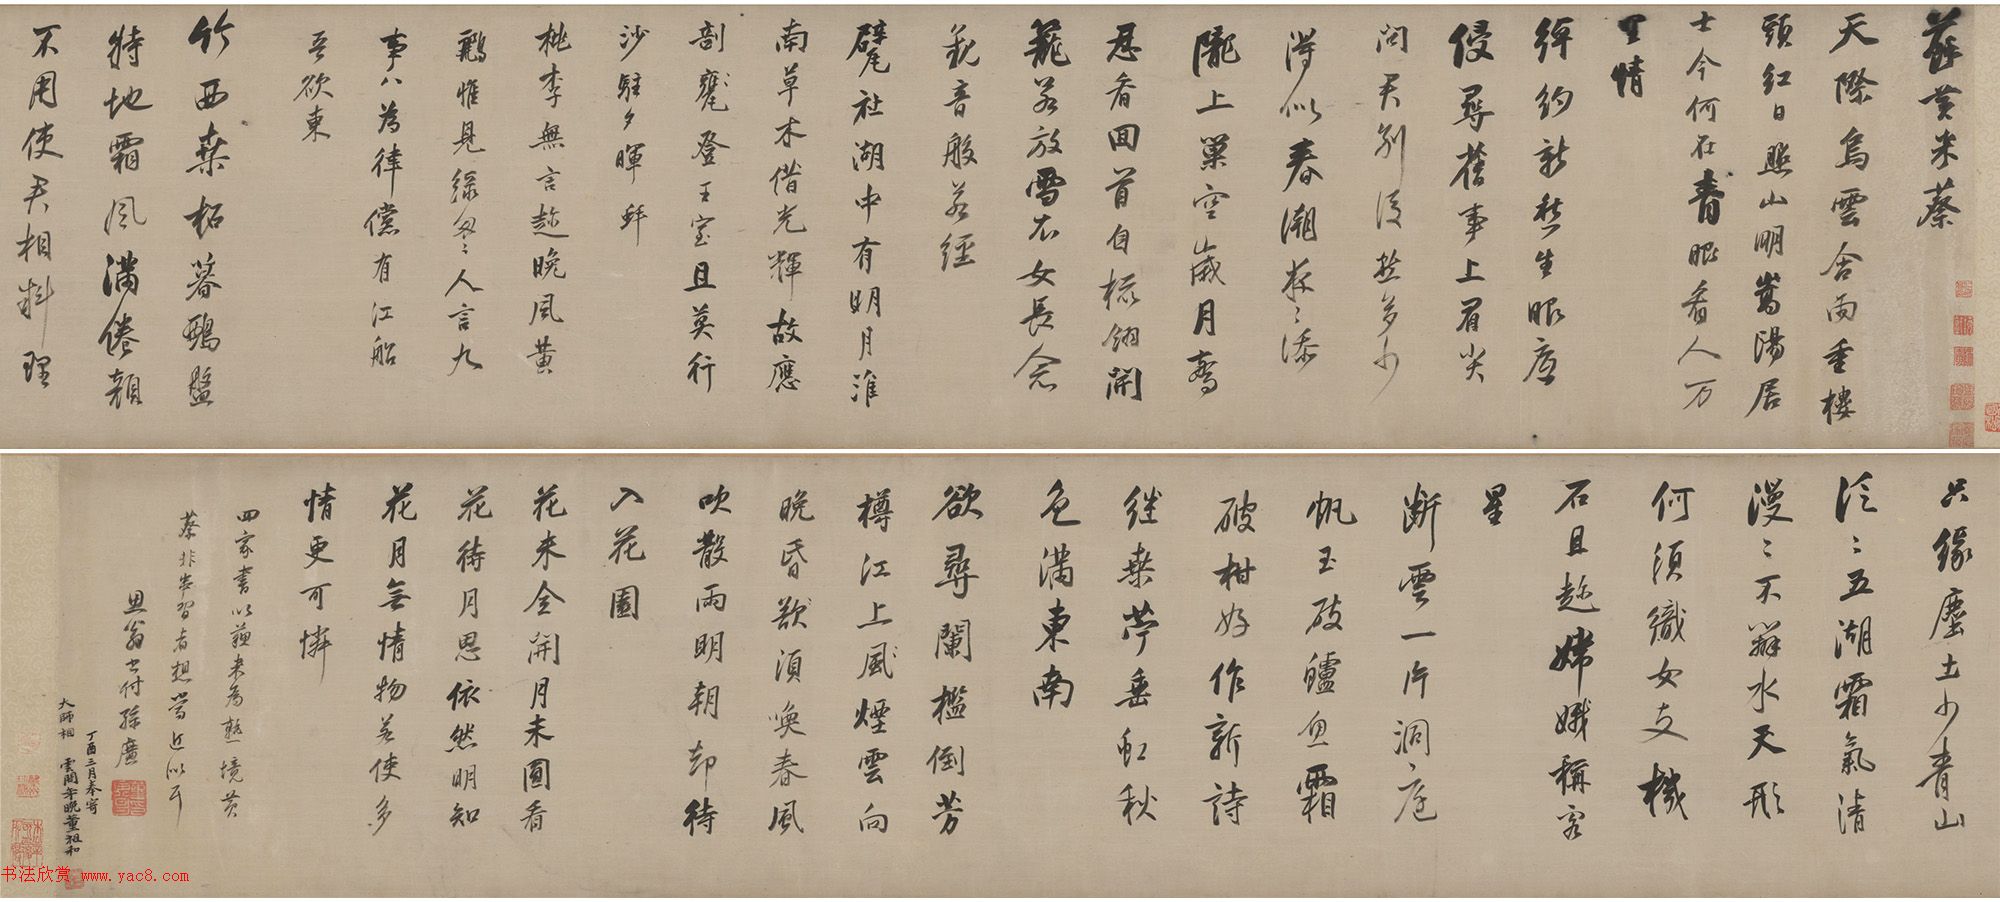 蘇黃米蔡
天際烏雲含雨重樓
頭紅日照山明嵩陽居
士今何在青眼看人万
里情
綽約新愁生眼底
侵尋舊事上眉尖
問君別後愁多少
得似春潮夜〻添
隴上巢空歲月驚
忍看回首自梳翎開
籠若放雪衣女長念
觀音般若經
甓社湖中有明月淮
南草木借光輝故應
剖蚌登王室且莫行
沙駐夕暉 蚌
桃李無言趁晚風黃
鸝惟見綠匆〻人言九
事八為律儻有江船
吾欲東
竹西桑柘暮鵶盤
特地霜風滿倦顏
不用使君相料理
只緣塵土少青山
泛〻五湖霜氣清
漫〻不辨水天形
何須織女支機
石且趁嫦娥稱客
星
斷雲一片洞庭
帆玉破鱸魚霜
破柑好作新詩
繼桑苧垂虹秋
色滿東南
欲尋闌檻倒芳
樽江上風煙雲向
晚昏欲須喚春風
吹散雨明朝却待
入花園
花未全開月未圓看
花待月思依然明知
花月無情物若使多
情更可憐
四家書以蘇米為熟境黃
蔡非出習者想當近似耳
思翁書付孫廣
丁酉三月奉寄
大師相 雲間年晚董祖和
书法欣赏 www.yac8.com